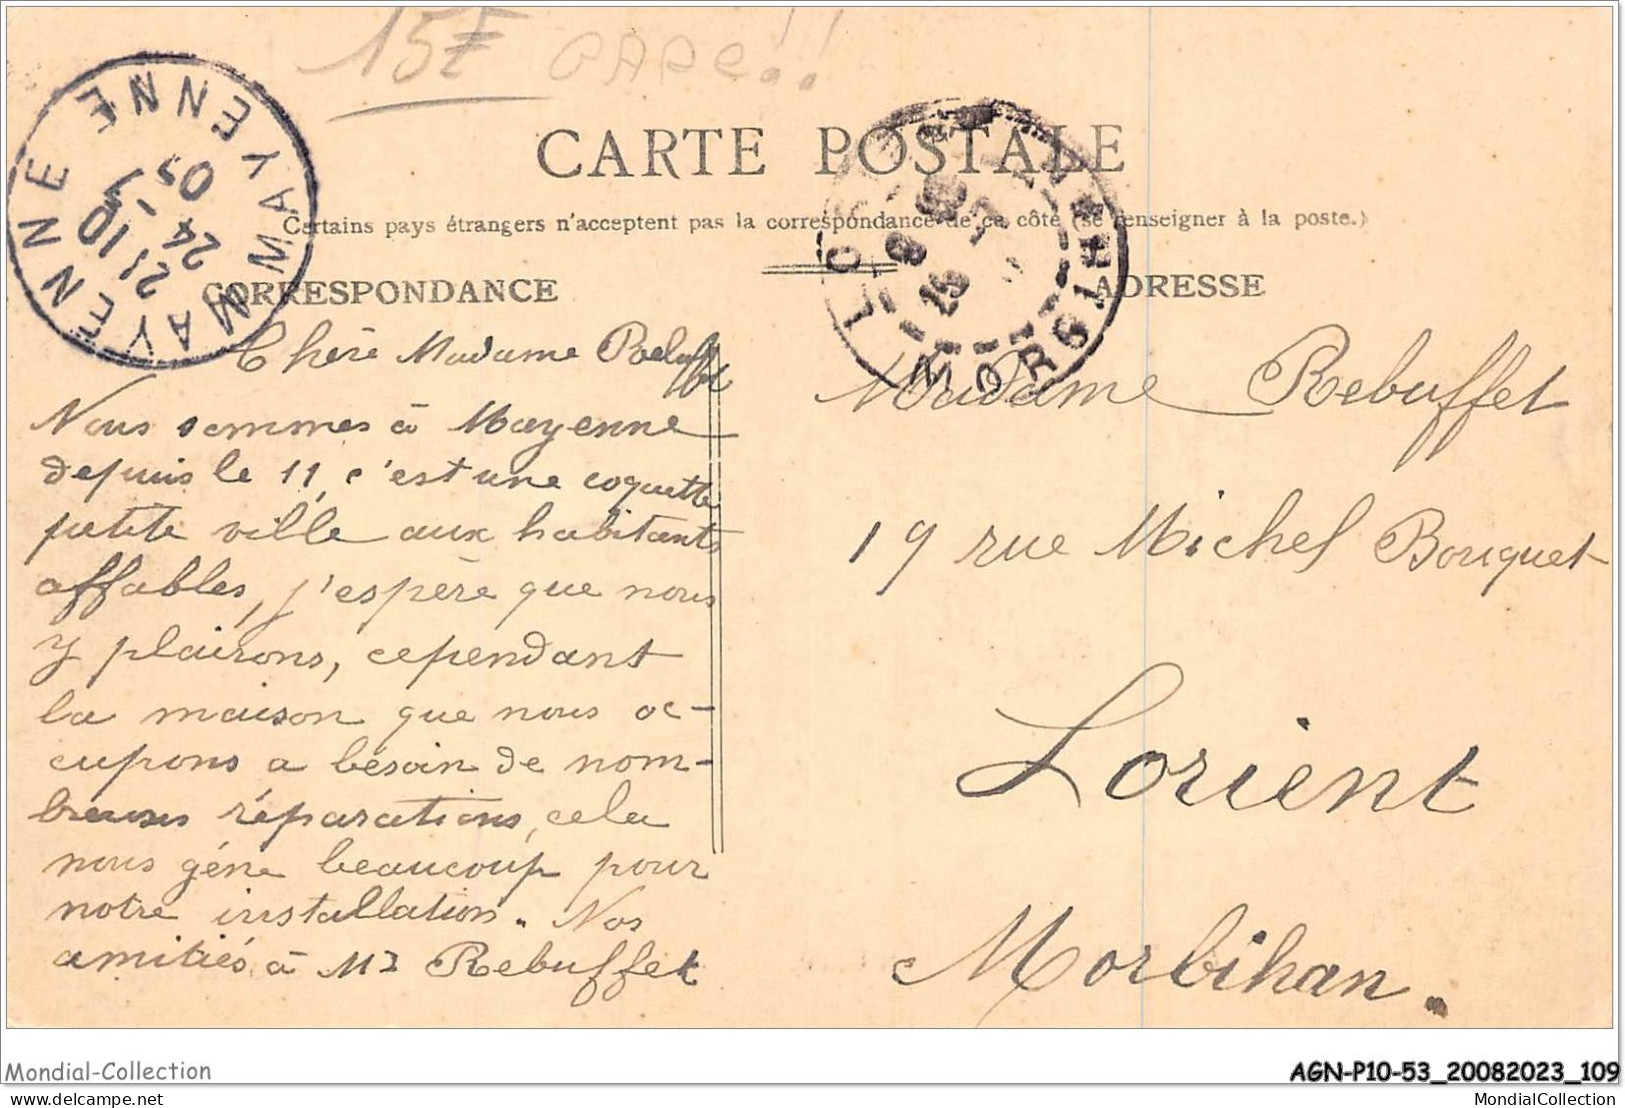 15F RARE!!
CARTE POSTALE
Certains pays étrangers n'acceptent pas la correspondance de ce côté (se renseigner à la poste.)
MAYENNE MAYENNE
21 10
24 - 9
05
LORIENT
MORBIHAN
25
CORRESPONDANCE
Chère Madame Rebuffet
Nous sommes à Mayenne
depuis le 11, c'est une coquette
petite ville aux habitants
affables, j'espère que nous
y plairons, cependant
la maison que nous oc-
cupons a besoin de nom-
breuses réparations, cela
nous gène beaucoup pour
notre installation. Nos
amitiés à Mr Rebuffet
ADRESSE
Madame Rebuffet
19 rue Michel Bouquet
Lorient
Morbihan.
Mondial-Collection
AGN-P10-53_20082023_109
delcampe.net
MondialCollection